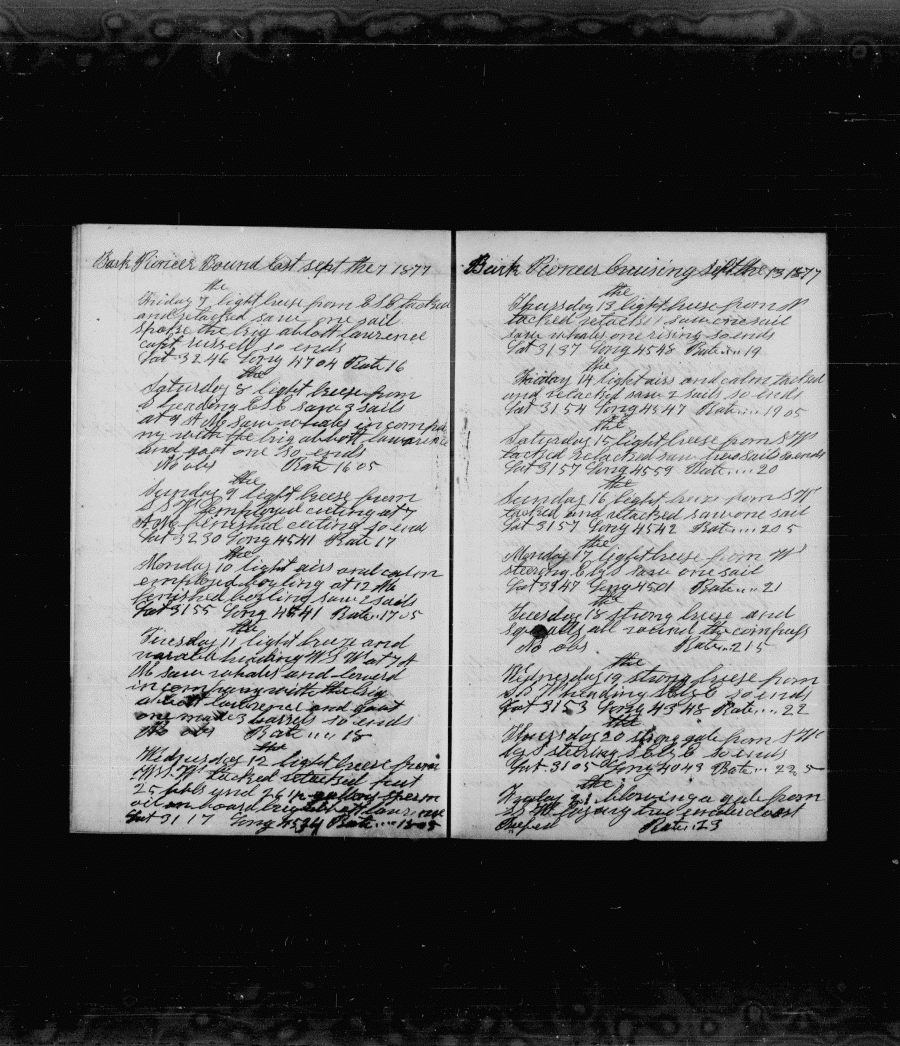 Bark Pioneer Bound East sept the 7 1877
the
Friday 7 light breese from ESE tacked
and retacked saw one sail
spoke the brig abbott laurence
capt russell so ends
Lat 32 46 Long 47 04 Rate 16
the
Saturday 8 light breese from
S heading ESE saw 3 sails
at 9 A M saw whales in compa
ny with the brig abbott lawrence
and got one so ends
No obs Rate 16 05
the
Sunday 9 light breese from
S S W employed cuting at 7
A M finished cuting so end
Lat 32 30 Long 45 41 Rate 17
the
Monday 10 light airs and calm
employed boyling at 12 M
finished boyling saw 2 sail
Lat 31 55 Long 45 41 Rate 17 05
the
Tuesday 11 light breese and
varable heading W S W at 7 A
M saw whales and lowerd
in company with the brig
abbott lawrence and gout
one made 3 barrels so ends
No obs Rate .... 18
the
Wednesday 12 light breese from
tacked retacked put
25 bbls and 26 1/2 gallons sperm
oil on board brig abbott laurence
Lat 31 17 Long 45 34 Rate .... 18 05
Bark Pioneer Cruising Sept the 13 1877
the
Thursday 13 light breese from W
tacked retacked saw one sail
saw whales one rising so ends
Lat 31 37 Long 45 48 Rate .... 19
the
Friday 14 light airs and calm tacked
and retacked saw 2 sails so ends
Lat 31 54 Long 45 47 Rate .... 19 05
the
Saturday 15 light breese from S W
tacked retacked saw two sails so ends
Lat 31 57 Long 45 59 Rate .... 20
the
Sunday 16 light breese from S W
tacked and retacked saw one sail
Lat 31 57 Long 45 42 Rate .... 20 5
the
Monday 17 light breese from W
steering E by S saw one sail
Lat 31 47 Long 45 01 Rate .... 21
the
Tuesday 18 strong breese and
squalls all round the compass
No obs Rate .. 21 5
the
Wednesday 19 strong breese from
S S W heading so ends
Lat 31 53 Long 43 48 Rate .... 22
the
Thursday 20 strong gale from S W
by S steering so ends
Lat 31 05 Long 40 43 Rate ... 22 5
the
Friday 21 blowing a gale from
S S W laying two under close
Rate .. 23